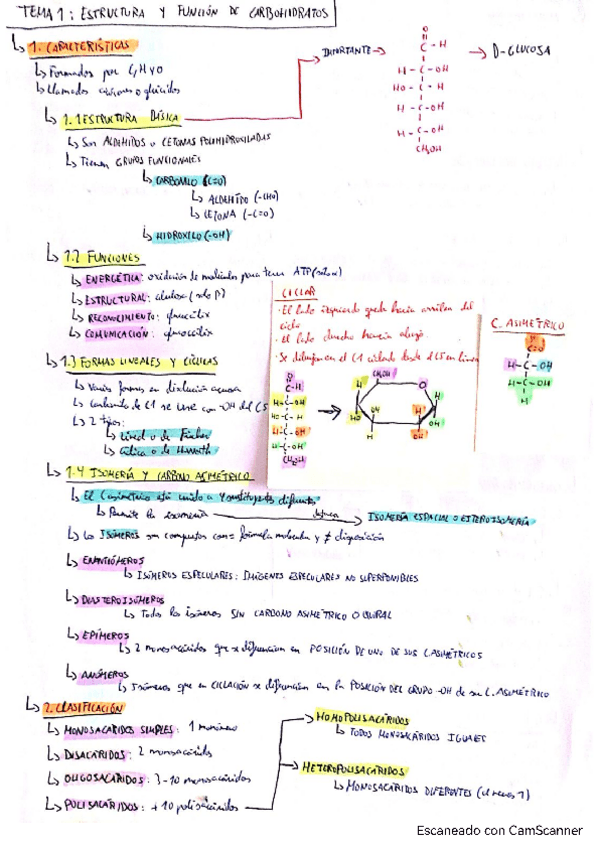 TEMA 1: ESTRUCTURA Y FUNCIÓN DE CARBOHIDRATOS
1. CARACTERÍSTICAS
Formados por C, H y O
Llamados o glúcidos
1.1 ESTRUCTURA BÁSICA
Son ALDEHÍDOS o CETONAS POLIHIDROXILADAS
Tienen GRUPOS FUNCIONALES
CARBONILO (C=O)
ALDEHÍDO (-CHO)
CETONA (-C=O)
HIDROXILO (-OH)
IMPORTANTE → D-GLUCOSA
O
C - H
H - C - OH
HO - C - H
H - C - OH
H - C - OH
CH2OH
1.2 FUNCIONES
ENERGÉTICA: oxidación de moléculas para tener ATP
ESTRUCTURAL: celulosa (solo β)
RECONOCIMIENTO: glucocálix
COMUNICACIÓN: glucocálix
CICLAR
· El lado izquierdo queda hacia arriba del
ciclo
· El lado derecho hacia abajo.
· Se dibujan en el C1 ciclado desde el C5 en línea
O
C-H
H-C-OH
HO-C-H
H-C-OH
H-C-OH
CH2OH
CH2OH
O
H
H
HO
OH
H
H
OH
OH
C. ASIMÉTRICO
O
C=O
H-C-OH
H-C-OH
1.3 FORMAS LINEALES Y CÍCLICAS
Varias formas en disolución acuosa
Carbonilo de C1 se une con -OH del C5
2 tipos:
Lineal o de Fischer
Cíclica o de Haworth
1.4 ISOMERÍA Y CARBONO ASIMÉTRICO
El C asimétrico está unido a 4 sustituyentes diferentes
Permite la isomería → ISOMERÍA ESPACIAL O ESTEREOISOMERÍA
Los ISÓMEROS son compuestos con = fórmula molecular y ≠ disposición
ENANTIÓMEROS
ISÓMEROS ESPECULARES: IMÁGENES ESPECULARES NO SUPERPONIBLES
DIASTEROISÓMEROS
Todos los isómeros SIN CARBONO ASIMÉTRICO O QUIRAL
EPÍMEROS
2 monosacáridos que se diferencian en POSICIÓN DE UNO DE SUS C.ASIMÉTRICOS
ANÓMEROS
Isómeros que en CICLACIÓN se diferencian en la POSICIÓN DEL GRUPO -OH de su C. ASIMÉTRICO
2. CLASIFICACIÓN
MONOSACÁRIDOS SIMPLES: 1 monómero
DISACÁRIDOS: 2 monosacáridos
OLIGOSACÁRIDOS: 3-10 monosacáridos
POLISACÁRIDOS: +10 polisacáridos
HOMOPOLISACÁRIDOS
TODOS MONOSACÁRIDOS IGUALES
HETEROPOLISACÁRIDOS
MONOSACÁRIDOS DIFERENTES (al menos 1)
Escaneado con CamScanner